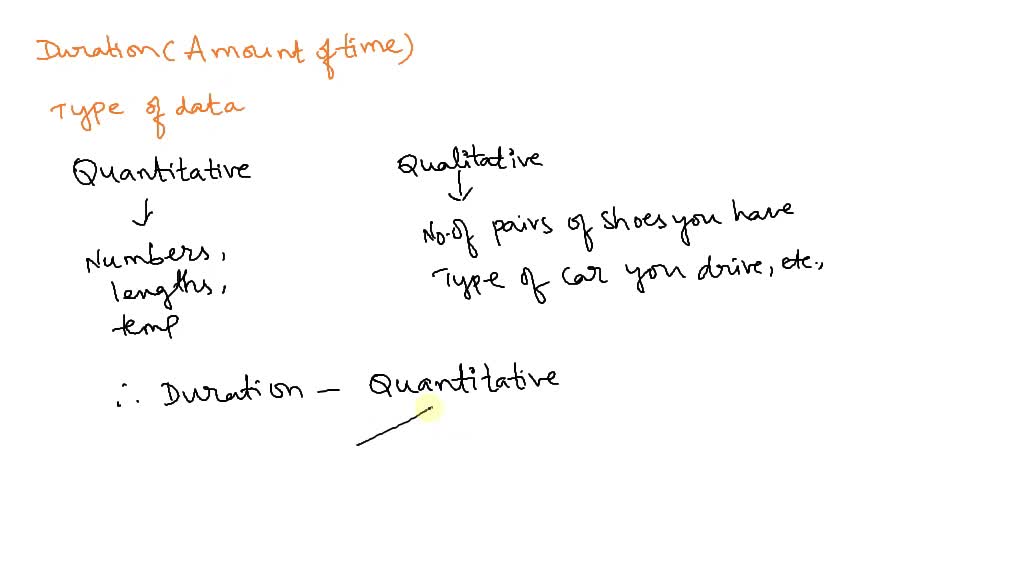 Duration (Amount of time)
Type of data
Quantitative
Numbers,
lengths,
temp
Qualitative
No. of pairs of shoes you have
Type of car you drive, etc.,
∴ Duration — Quantitative